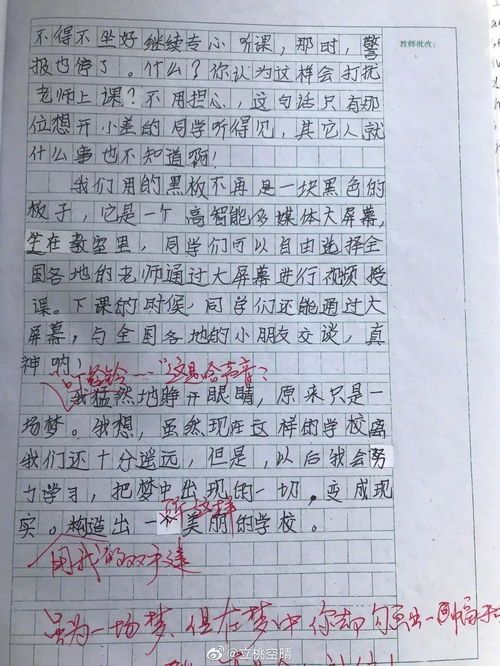 教师批改:
不得不坐好继续专心听课，那时，警
报也停了。什么？你认为这样会打扰
老师上课？不用担心，这句话只有那
位想开小差的同学听得见，其它人就
什么事也不知道啊！
我们用的黑板不再是一块黑色的
板子，它是一个高智能多媒体大屏幕，
坐在教室里，同学们可以自由选择全
国各地的老师通过大屏幕进行视频授
课。下课的时候，同学们还能通过大
屏幕，与全国各地的小朋友交谈，真
神哟！
“叮铃铃……”这是啥声音？
我猛然地睁开眼睛，原来只是一
场梦。我想，虽然现在这样的学校离
我们还十分遥远，但是，以后我会努
力学习，把梦中出现的一切，变成现
实。构造出一所这样美丽的学校。
用我的双手建
虽为一场梦，但在梦中你却勾画出一幅
@立桃空晴